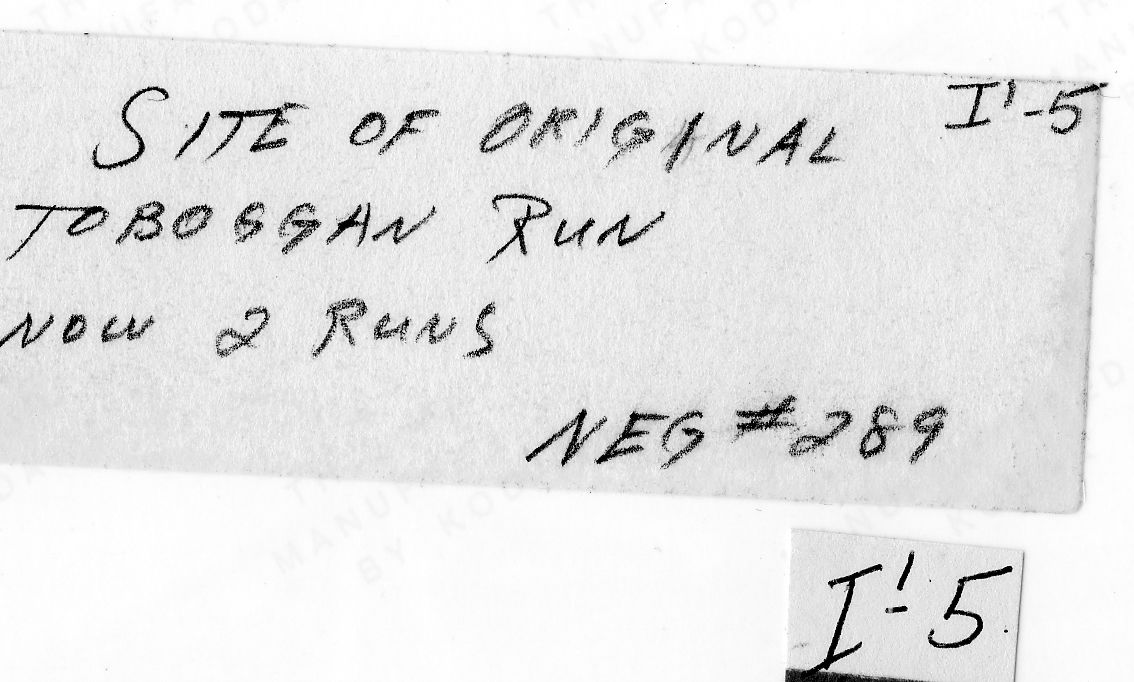 I'-5
SITE OF ORIGINAL
TOBOGGAN RUN
NOW 2 RUNS
NEG #289
I'-5
MANUFA
BY KODA